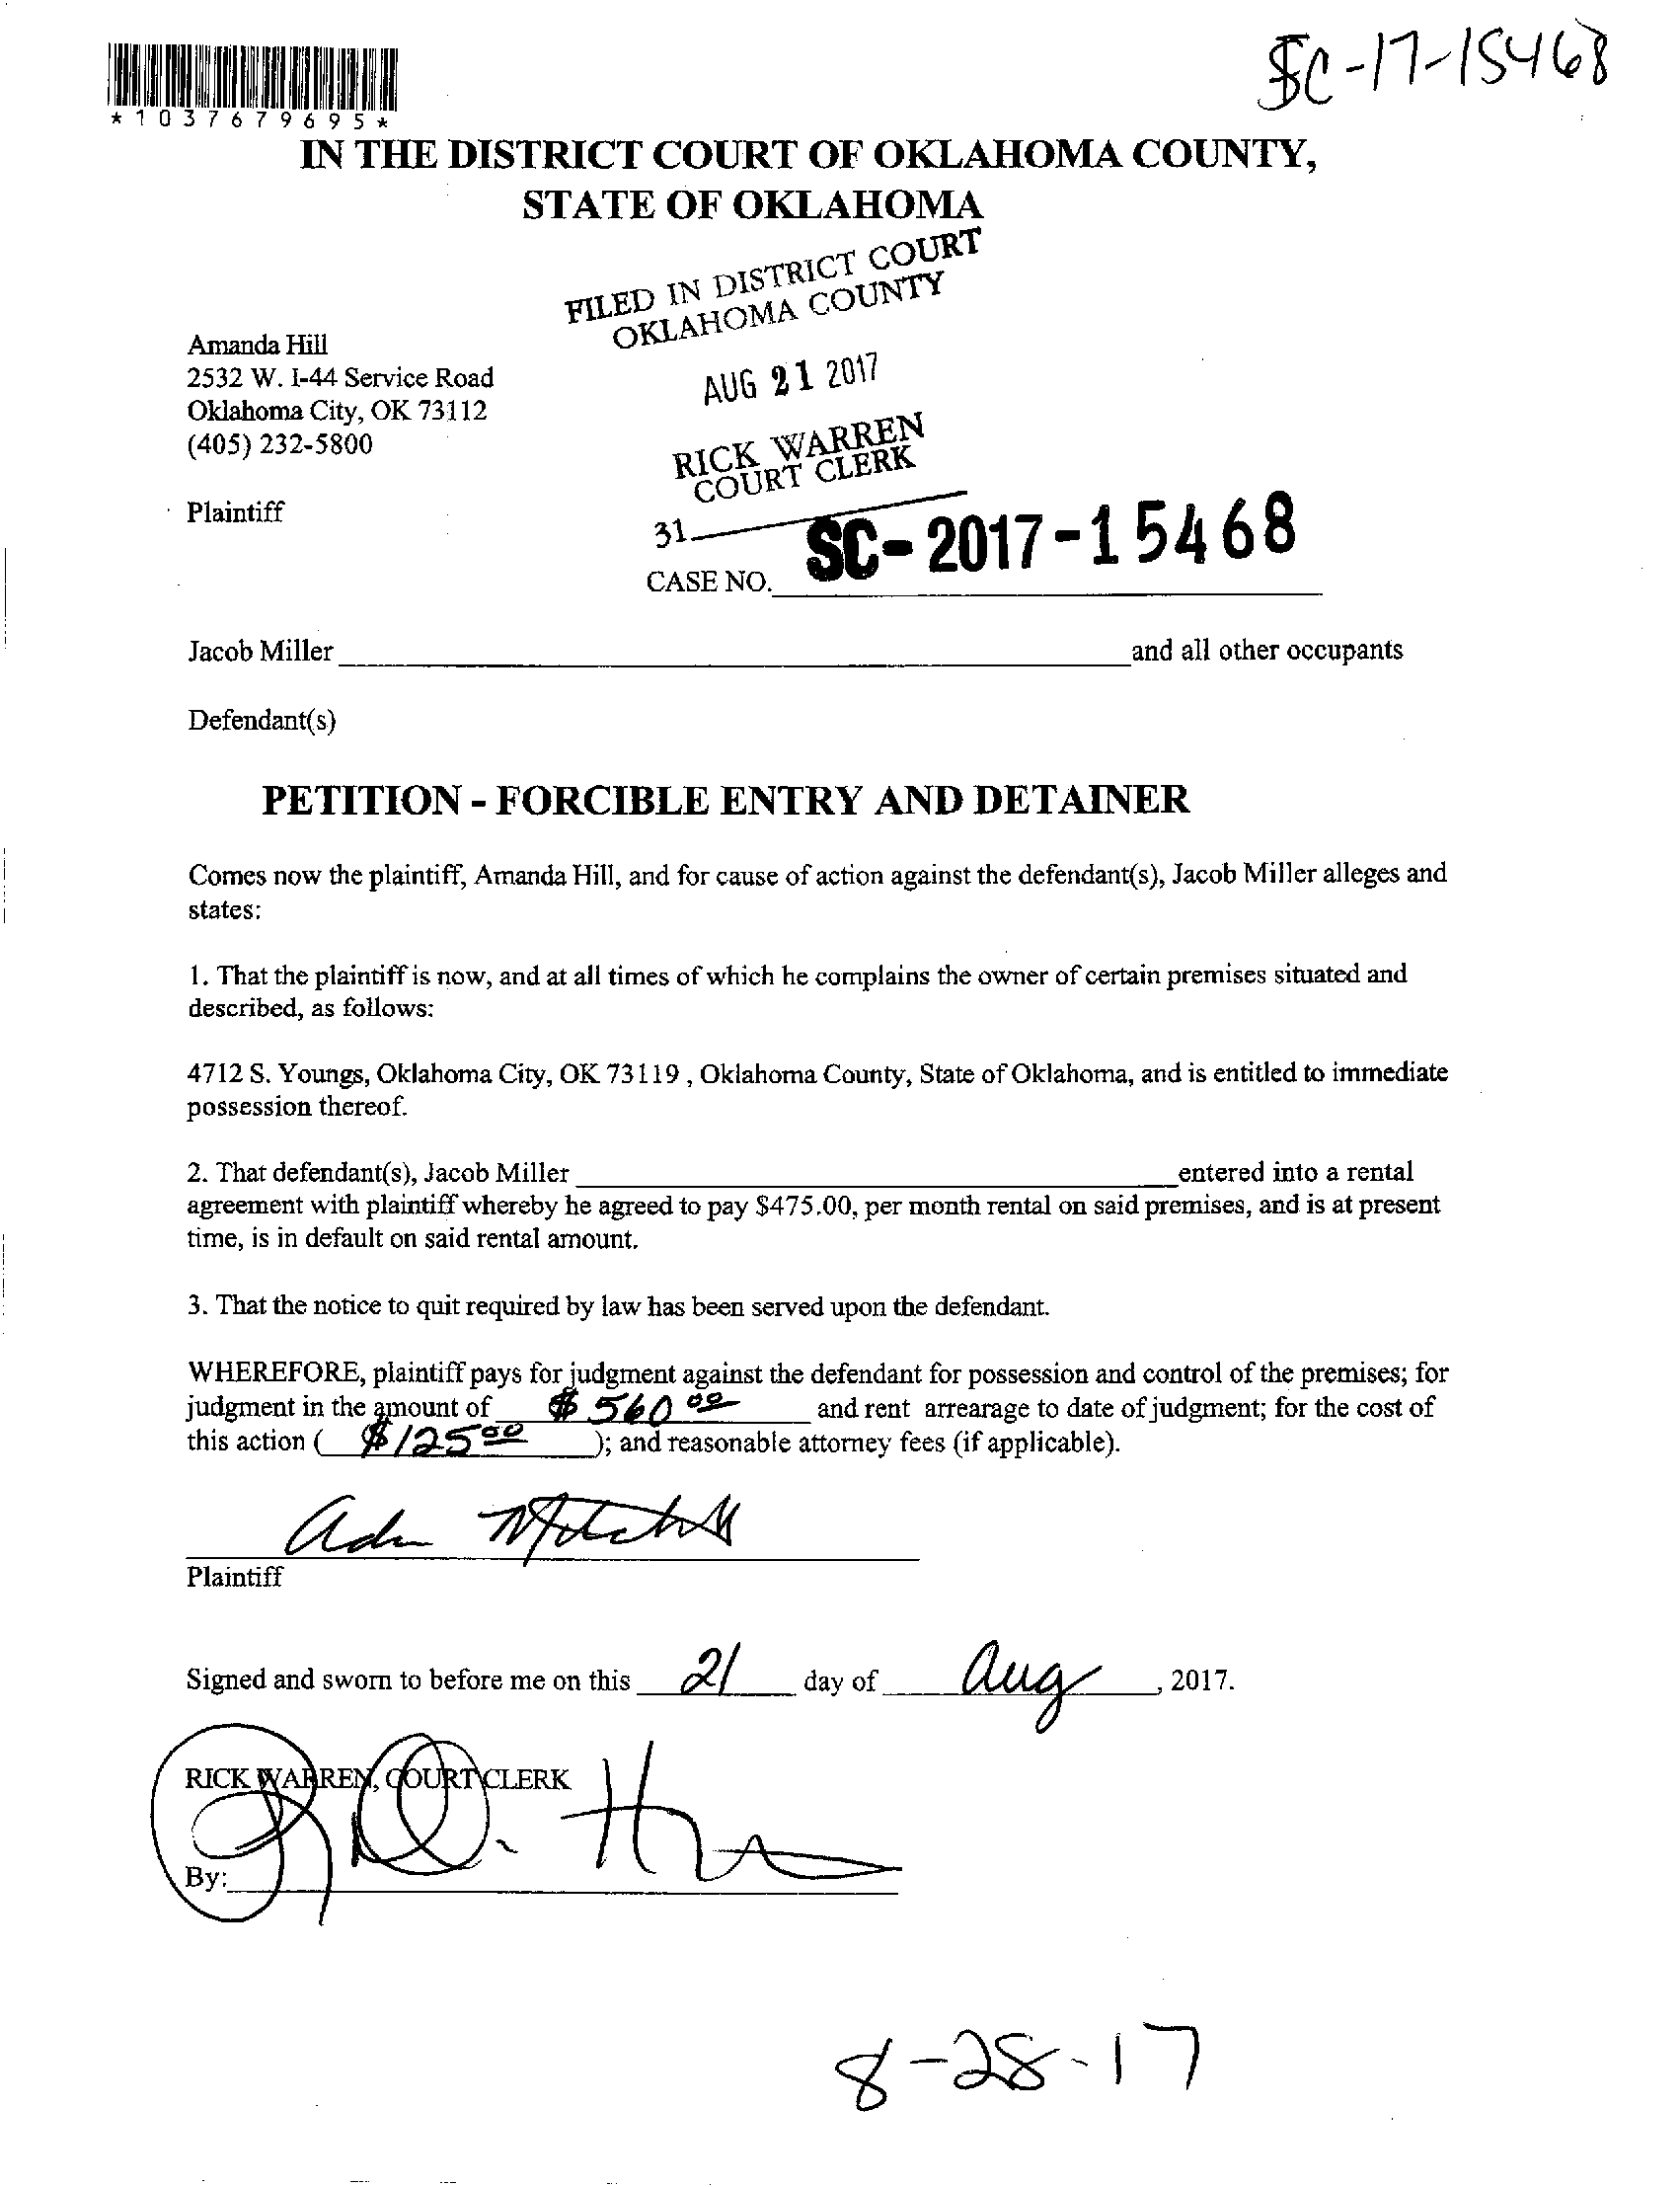 SC-17-15468
*1037679695*
IN THE DISTRICT COURT OF OKLAHOMA COUNTY,
STATE OF OKLAHOMA
FILED IN DISTRICT COURT
OKLAHOMA COUNTY
AUG 21 2017
RICK WARREN
COURT CLERK
31
Amanda Hill
2532 W. I-44 Service Road
Oklahoma City, OK 73112
(405) 232-5800
Plaintiff
CASE NO. SC-2017-15468
Jacob Miller and all other occupants
Defendant(s)
PETITION - FORCIBLE ENTRY AND DETAINER
Comes now the plaintiff, Amanda Hill, and for cause of action against the defendant(s), Jacob Miller alleges and
states:
1. That the plaintiff is now, and at all times of which he complains the owner of certain premises situated and
described, as follows:
4712 S. Youngs, Oklahoma City, OK 73119 , Oklahoma County, State of Oklahoma, and is entitled to immediate
possession thereof.
2. That defendant(s), Jacob Miller entered into a rental
agreement with plaintiff whereby he agreed to pay $475.00, per month rental on said premises, and is at present
time, is in default on said rental amount.
3. That the notice to quit required by law has been served upon the defendant.
WHEREFORE, plaintiff pays for judgment against the defendant for possession and control of the premises; for
judgment in the amount of $560.00 and rent arrearage to date of judgment; for the cost of
this action ( $125.00 ); and reasonable attorney fees (if applicable).
Plaintiff
Signed and sworn to before me on this 21 day of Aug, 2017.
RICK WARREN, COURT CLERK
By:
8-28-17